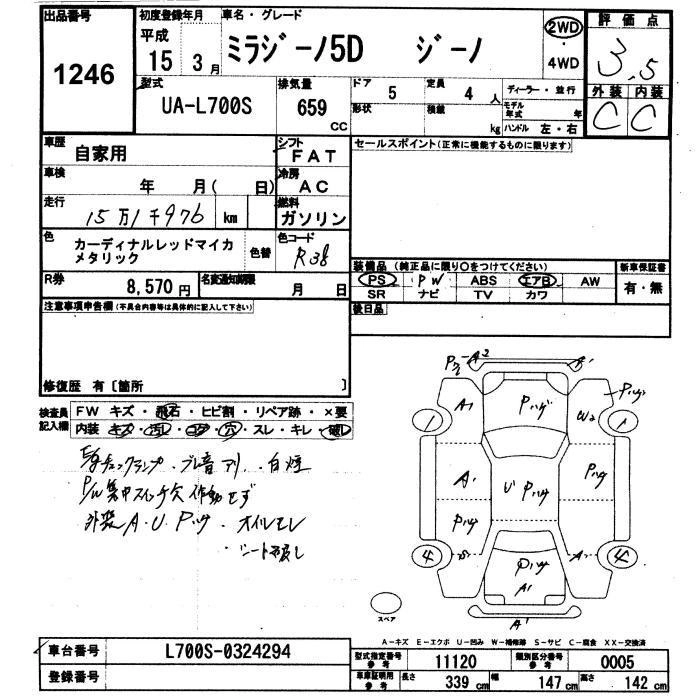 出品番号 初度登録年月 車名・グレード 2WD 評価点
1246 平成 15年 3月 ミラジーノ5D ジーノ ・ 3.5
4WD
型式 排気量 ドア 5 定員 4人 ディーラー・並行 外装 内装
UA-L700S 659 CC 形状 積載 kg モデル年式 年 C C
ハンドル 左・右
車歴 自家用 シフト FAT セールスポイント(正常に機能するものに限ります)
車検 年 月( 日) 冷房 AC
走行 15万1千976 km 燃料 ガソリン
色 カーディナルレッドマイカ 色替 色コード R38
メタリック
装備品 (純正品に限り○をつけてください) 新車保証書
R券 8,570円 名変通知期限 月 日 PS PW ABS エアB AW 有・無
SR ナビ TV カワ
注意事項申告欄(不具合内容等は具体的に記入して下さい) 後日品
修復歴 有〔箇所 〕
検査員 FW キズ・飛石・ヒビ割・リペア跡・×要
記入欄 内装 キズ・汚レ・コゲ・穴・スレ・キレ・破レ
E/gチェックランプ・ブレ音アリ・白煙
P/W集中スイッチ欠作動せず
外装A.U.Pハゲ・オイルモレ
・シート破レ
A2 A1
A1 Pハゲ W2 Pハゲ
A1 U Pハゲ Pハゲ
Pハゲ
4 S Pハゲ A 4
A1
スペア A1
A-キズ E-エクボ U-凹み W-補修跡 S-サビ C-腐食 XX-交換済
車台番号 L700S-0324294 型式指定番号 参考 11120 類別区分番号 参考 0005
登録番号 車庫証明用 参考 長さ 339cm 幅 147cm 高さ 142cm